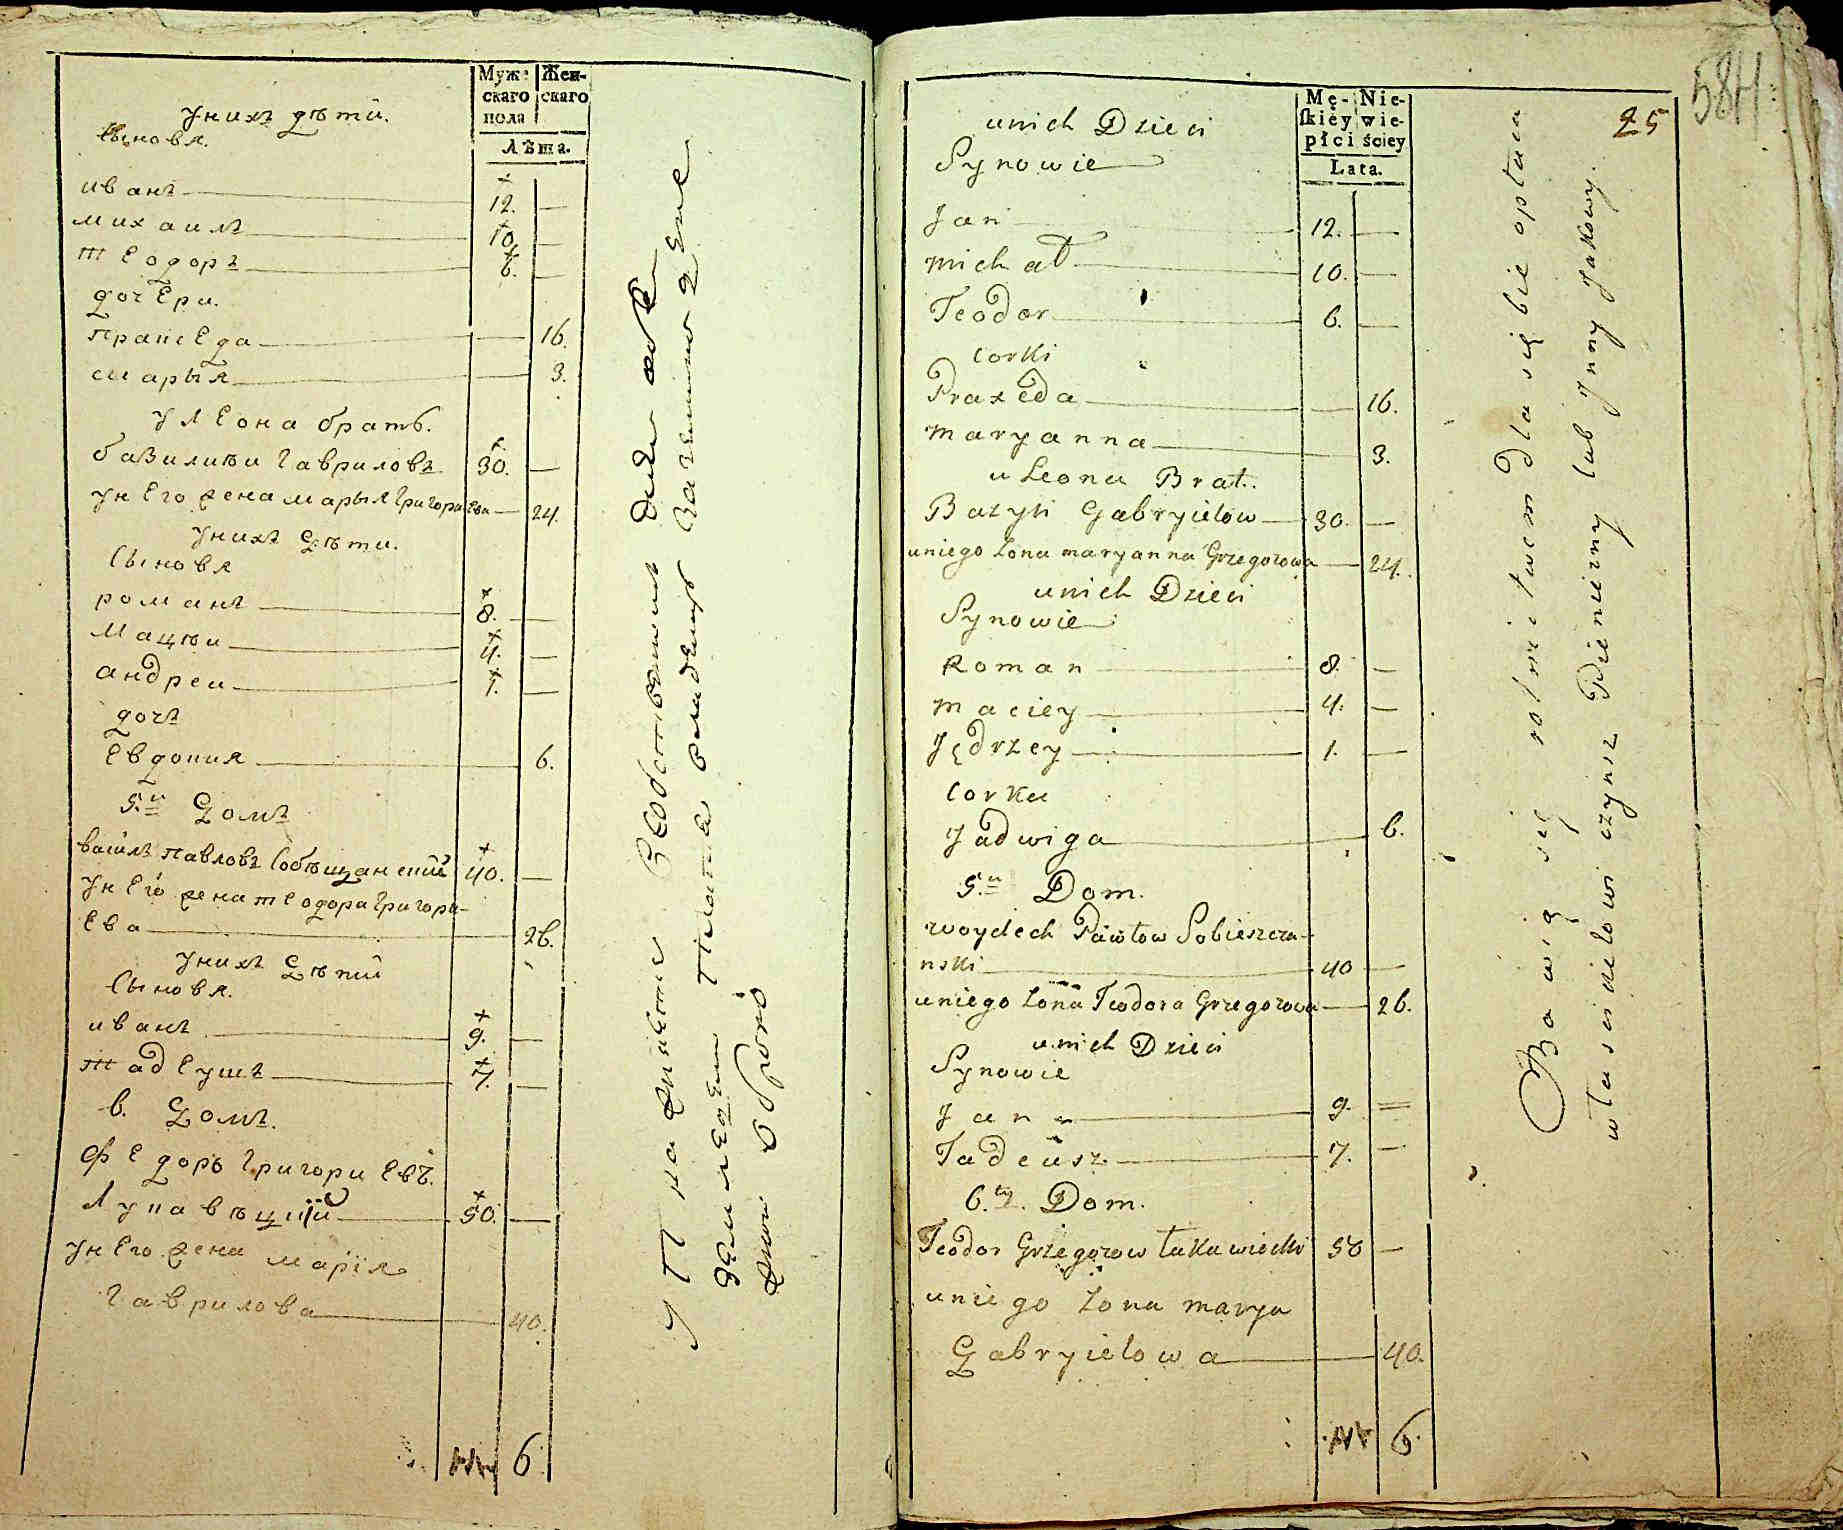 Муже-
скаго
пола
Жен-
скаго
Лѣта.
у нихъ дѣти.
Сыновя.
иванъ 12. —
михаилъ 10. —
теодоръ 6. —
дочери.
пракседа — 16.
марыя — 3.
у леона братъ.
базилий гавриловъ 30. —
у него жена марыя григориева — 24.
у нихъ дѣти.
Сыновя
романъ 8. —
мацѣи 4. —
андреи 1. —
дочь
евдокия 6.
5.й домъ
василъ павловъ Собѣщанский 40. —
у него жена теодора григори-
ева 26.
у нихъ дѣти
Сыновя.
иванъ 9. —
тадеушъ 7. —
6. домъ.
Федоръ григориевъ.
лукавѣцкий 50. —
у него жена марiя
гаврилова 40.
6.
584
25
Mę-
skiéy
płci
Nie-
wie-
ściey
Lata.
unich Dzieci
Synowie
Jan 12. —
michał 10. —
Teodor 6. —
Corki
Praxeda — 16.
maryanna 3.
u Leona Brat.
Bazyli Gabryielow 30. —
uniego żona maryanna Grzegorowa — 24.
unich Dzieci
Synowie
Roman 8. —
maciey 4. —
Jędrzey 1. —
Corka
Jadwiga 6.
5.ty Dom.
woyciech Pawłow Sobieszcza-
nski 40 —
uniego żona Teodora Grzegorowa — 26.
unich Dzieci
Synowie
Jan 9. —
Tadeusz 7. —
6.ty Dom.
Teodor Grzegorow Łukawiecki 50 —
uniego żona marya
Gabryielowa — 40.
6.
Bawią się rolnictwem dla siebie opłaca
włascicielowi czynsz Pienieżny lub Jnny Jakowy.